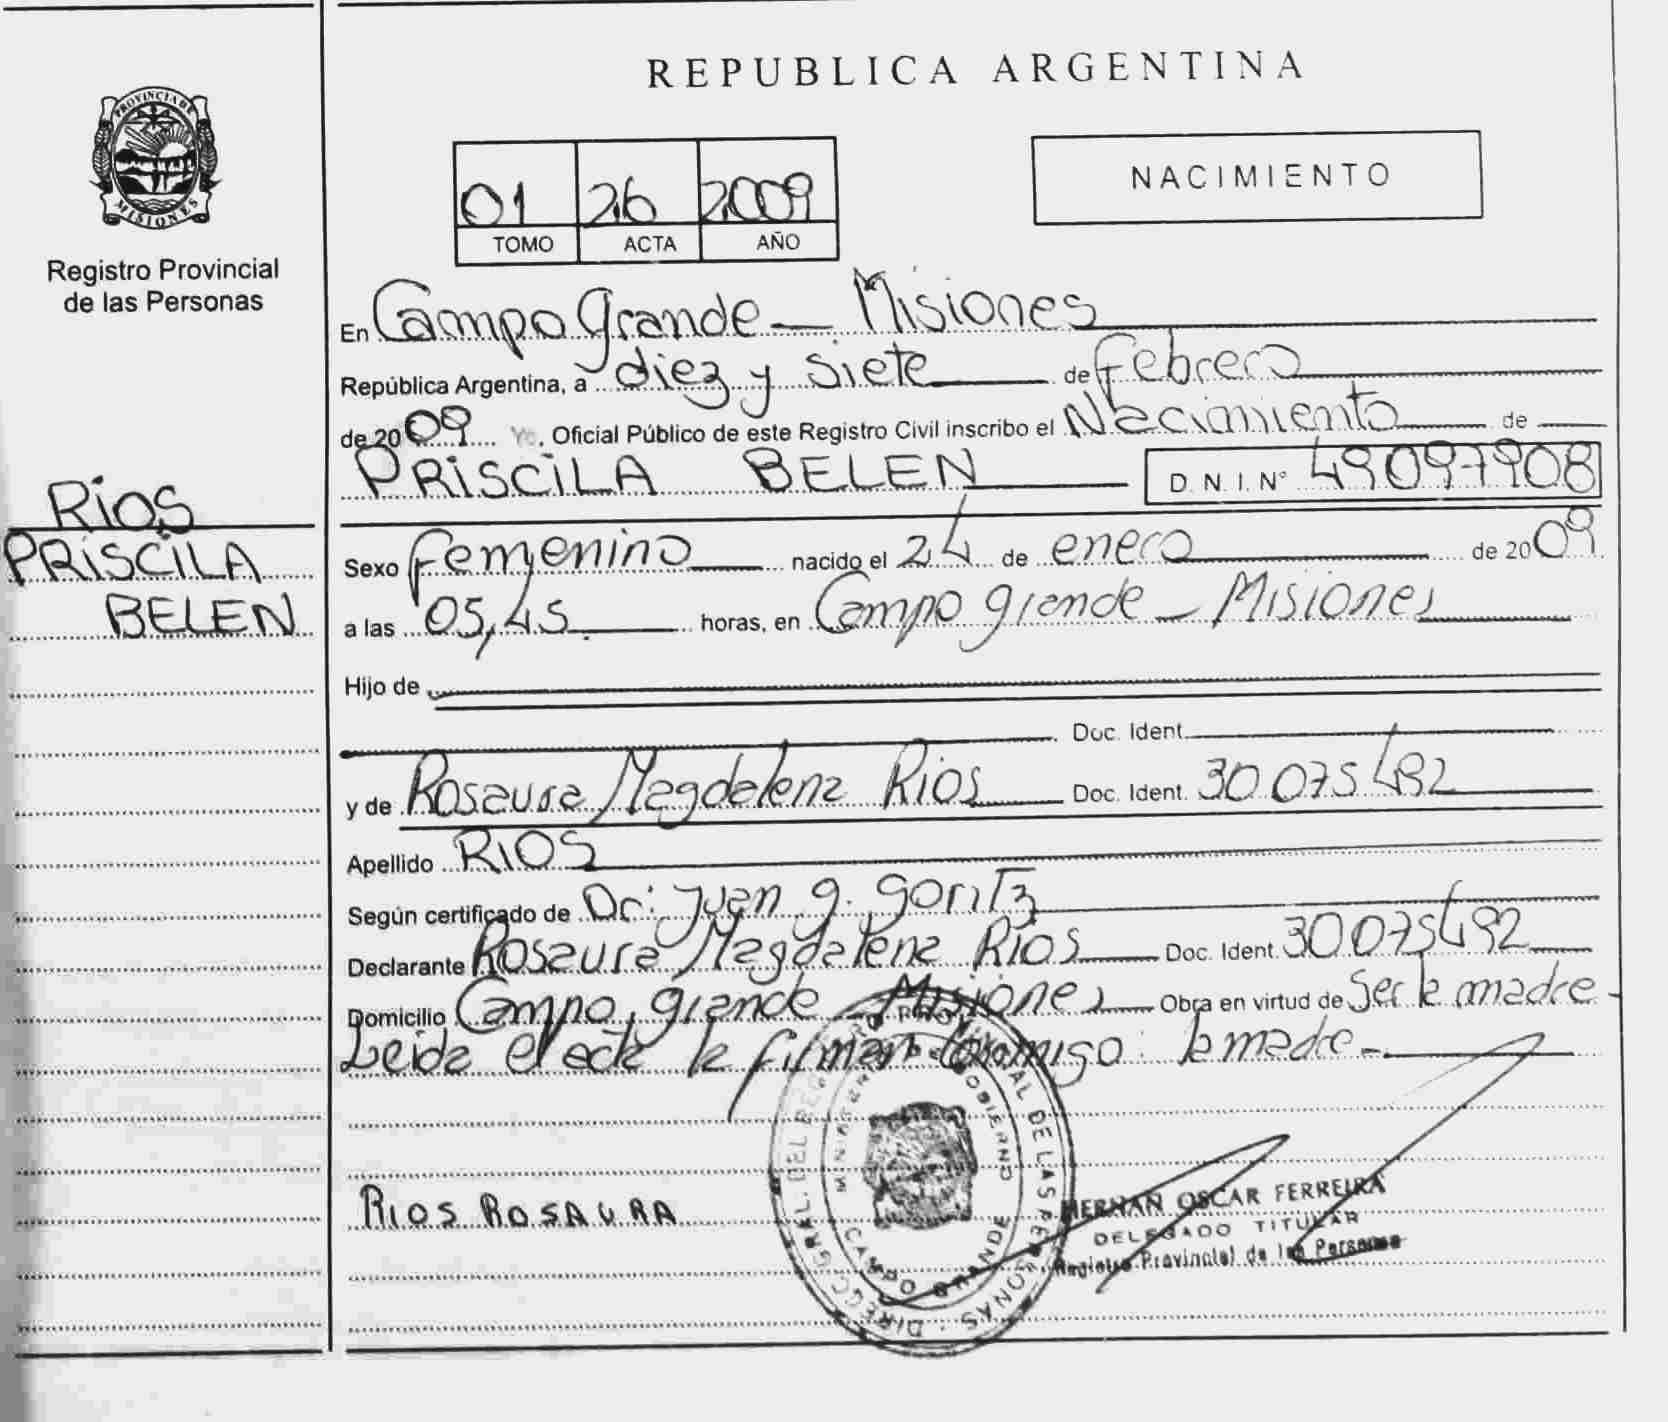 REPUBLICA ARGENTINA
PROVINCIA DE
MISIONES
Registro Provincial
de las Personas
01 26 2009
TOMO ACTA AÑO
NACIMIENTO
En Campo Grande - Misiones
República Argentina, a diez y siete de Febrero
de 2009 Yo, Oficial Público de este Registro Civil inscribo el Nacimiento de
PRISCILA BELEN D. N. I. N° 49097908
RIOS
PRISCILA
BELEN
Sexo Femenino nacido el 24 de enero de 2009
a las 05,45. horas, en Campo grande - Misiones
Hijo de
Doc. Ident.
y de Rosaura Magdalena Rios Doc. Ident. 30 075 492
Apellido RIOS
Según certificado de Dr: Juan g. goritz
Declarante Rosaura Magdalena Rios Doc. Ident. 30 075 492
Domicilio Campo grande - Misiones Obra en virtud de Ser la madre -
Leida el acta la firman conmigo: la madre -
RIOS ROSAURA
HERNAN OSCAR FERREIRA
DELEGADO TITULAR
Registro Provincial de las Personas
MINISTERIO DE GOBIERNO
CAMPO GRANDE